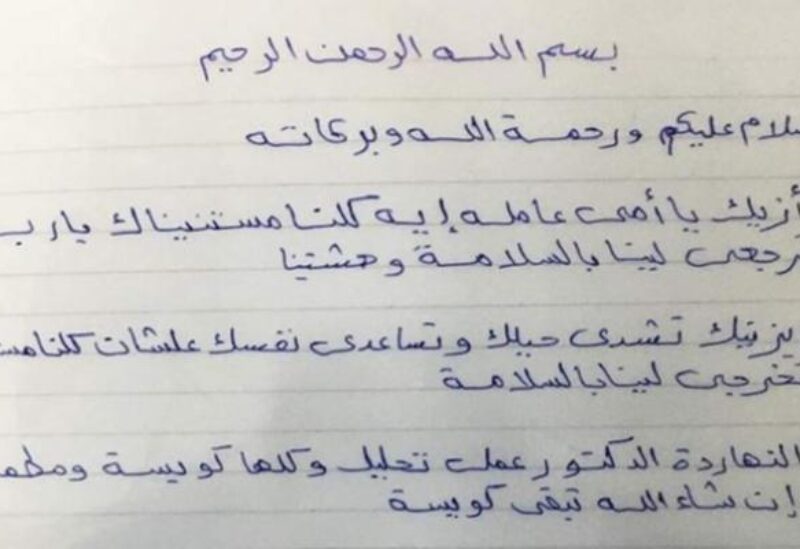 بسم الله الرحمن الرحيم
سلام عليكم ورحمة الله وبركاته
أزيك يا أمى عامله إيه كلنا مستنيناك يارب
ترجعى لينا بالسلامة وحشتينا
يزتيك تشدى حيلك وتساعدى نفسك علشان كلنا مست
تخرجى لينا بالسلامة
النهاردة الدكتور عمل تحليل وكلها كويسة ومطم
إن شاء الله تبقى كويسة